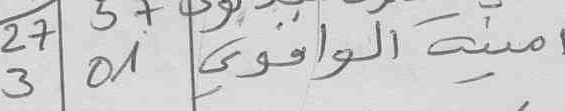 27 | 57
3 | 01 | امينة الوافوي